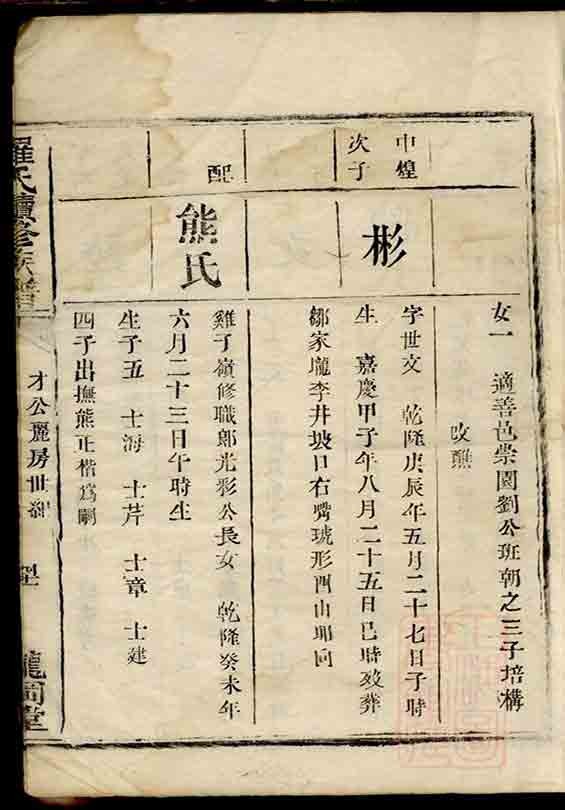 女一　適善邑柴園劉公班朝之三子培構
改醮
中煌
次子
彬
字世文　乾隆庚辰年五月二十七日子時
生　嘉慶甲子年八月二十五日巳時歿葬
鄒家龍李井坡口右嘴琥形酉山卯向
配
熊氏
雞子嶺修職郎光彩公長女　乾隆癸未年
六月二十三日午時生
生子五　士海　士芹　士章　士建
四子出撫熊正楷爲嗣
羅氏續修族譜
才公麗房世